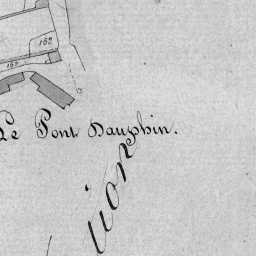 162
163
Le Pont Dauphin.
tion